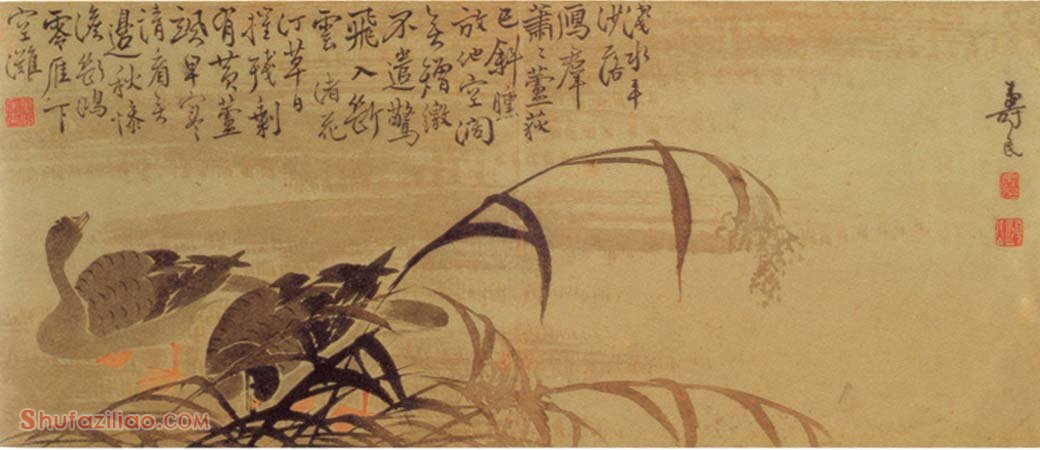 壽民
淺水平
沙落
鴈羣
蕭〻蘆荻
已斜曛
放他空闊
無矰繳
不遣驚
飛入斷
雲 渚花
汀草日
摧殘剩
有黃蘆
早寒
請看無
邊秋慘
澹斷鴻
零雁下
空灘
Shufaziliao.COM